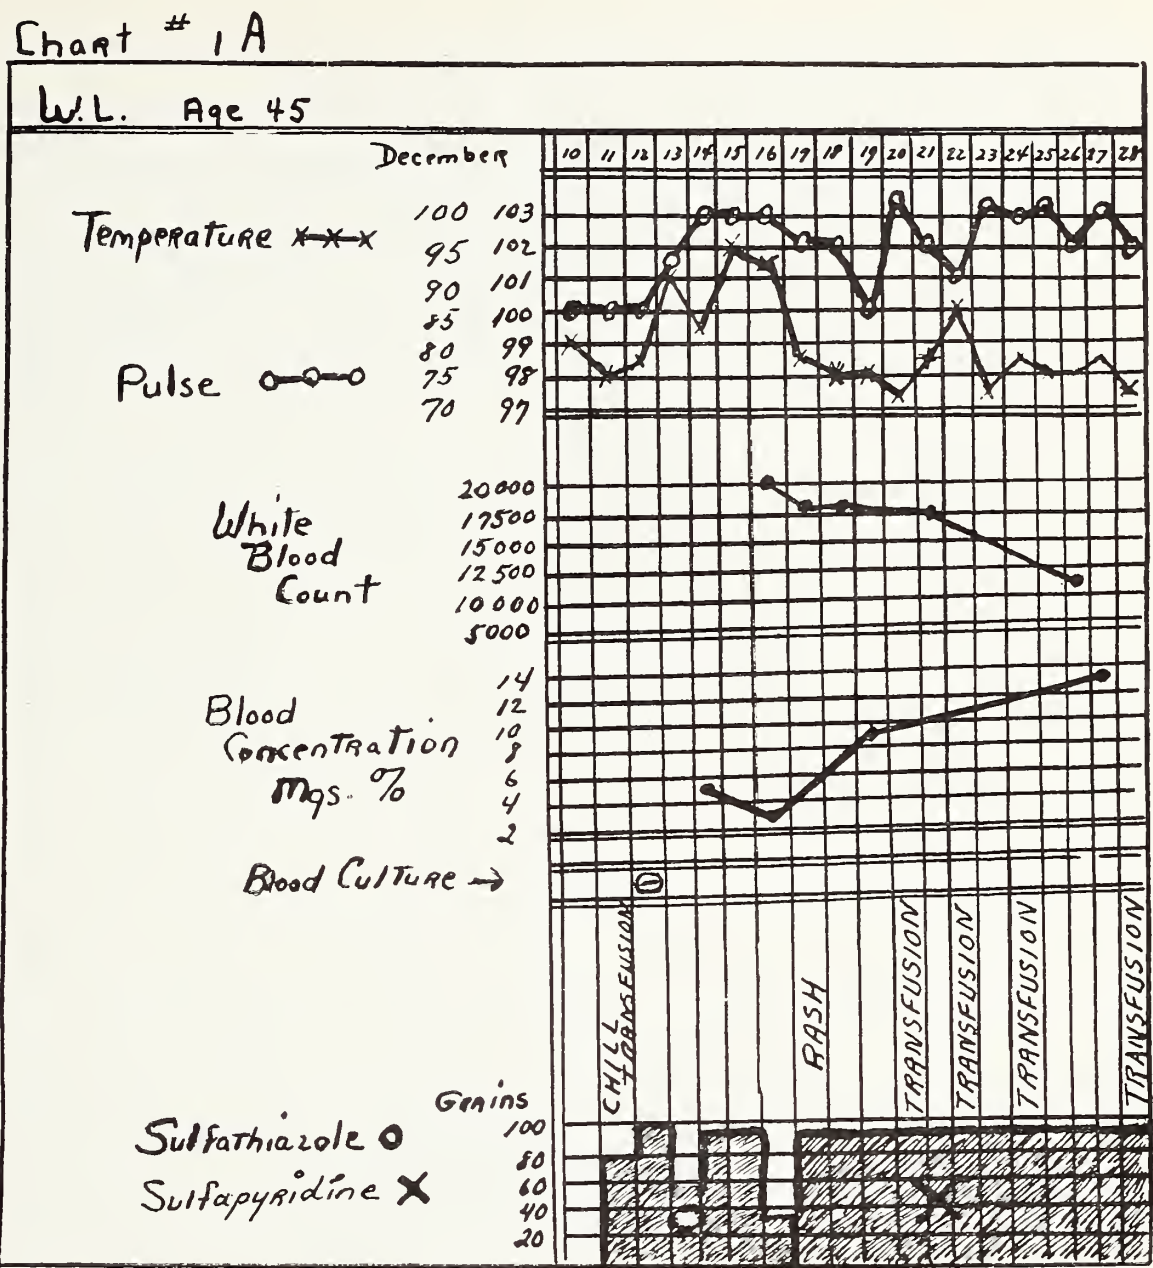 Chart # 1A
W.L. Age 45
December 10 11 12 13 14 15 16 17 18 19 20 21 22 23 24 25 26 27 28
Temperature x-x-x
100 103
95 102
90 101
85 100
80 99
75 98
70 97
Pulse o-o-o
White
Blood
Count
20000
17500
15000
12500
10000
5000
Blood
Concentration
Mgs. %
14
12
10
8
6
4
2
Blood Culture →
CHILL
TRANSFUSION
RASH
TRANSFUSION
TRANSFUSION
TRANSFUSION
TRANSFUSION
Grains
Sulfathiazole O
Sulfapyridine X
100
80
60
40
20